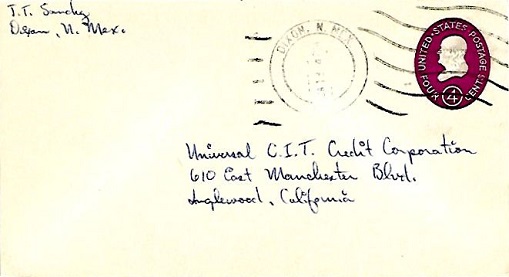 T. T. Sanchez
Dixon, N. Mex.
DIXON, N. MEX.
UNITED STATES POSTAGE
4
FOUR CENTS
Universal C.I.T. Credit Corporation
610 East Manchester Blvd.
Inglewood, California